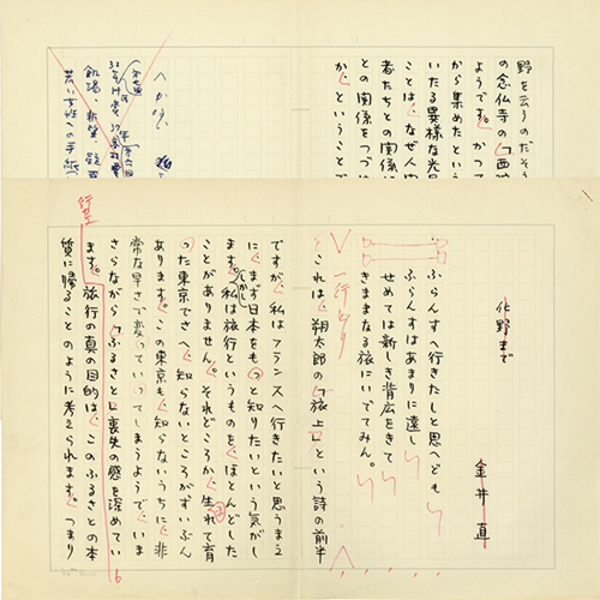 野を云うのだそう
の念仏寺の「西
ようです。かつて
から集めたという
いたる異様な光
ことは、なぜ人
者たちとの関係
との関係をつづ
か、ということで
若い女性への手紙
化野まで
金井直
ふらんすへ行きたしと思へども
ふらんすはあまりに遠し
せめては新しき背広をきて
きままなる旅にいでてみん。
一行とり
これは、朔太郎の「旅上」という詩の前半
ですが、私はフランスへ行きたいと思うまえ
に、まず日本をもっと知りたいという気がし
ます。しかし私は旅行というものを、ほとんどした
ことがありません。それどころか、生れて育
った東京でさへ、知らないところがずいぶん
あります。この東京も、知らないうちに、非
常な早さで変っていってしまうようで、いま
さらながら「ふるさと」喪失の感を深めてい
ます。旅行の真の目的は、このふるさとの本
質に帰ることのように考えられます。つまり
行空